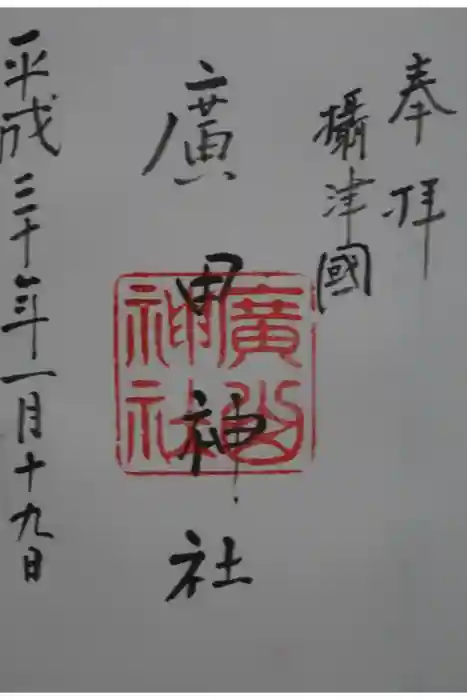 奉拝
攝津國
廣田神社
平成三十年一月十九日
廣
神社